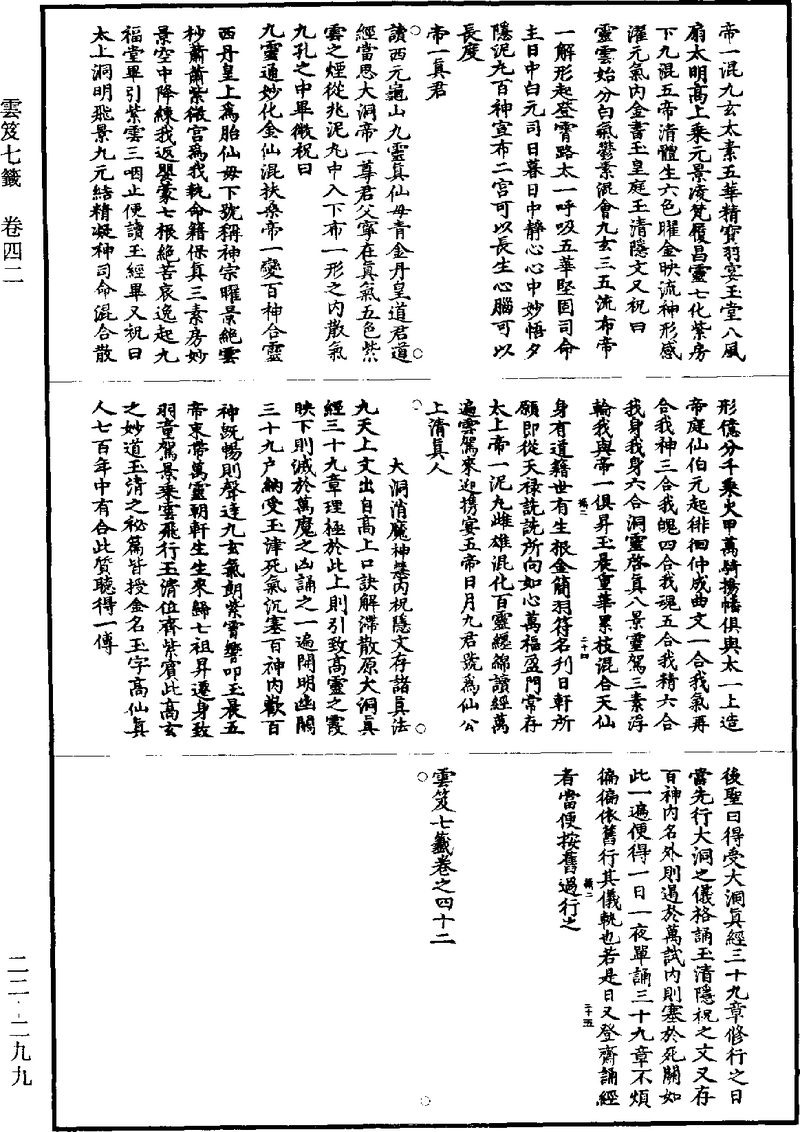 帝一混九玄太素五華精寶羽宴玉堂八風
扇太明高上乘元景淩梵履昌靈七化紫房
下九混五帝清體生六色曜金映流神形感
濯元氣內金書玉皇庭玉清隱文又祝曰
靈雲始分白氣鬱素混會九玄三五流布帝
一解形起登霄路太一呼吸五華堅固司命
主日中白元司日暮日中靜心心中妙悟夕
隱泥丸百神宣布二宮可以長生心腦可以
長度
帝一真君
讀西元龜山九靈真仙母青金丹皇道君道
經當思大洞帝一尊君父寧在真氣五色紫
雲之煙從兆泥丸中入下布一形之內散氣
九孔之中畢微祝曰
九靈通妙化金仙混扶桑帝一變百神合靈
西丹皇上為胎仙母下號稱神宗曜景絕雲
杪蕭蕭紫微宮為我執命籍保真三素房妙
景空中降練我返嬰蒙七根絕苦哀逸起九
福堂畢引紫雲三咽止便讀玉經畢又祝曰
太上洞明飛景九元結精凝神司命混合散
形億分千乘火甲萬騎揚幡俱與太一上造
帝庭仙伯元起徘徊仲成曲文一合我氣再
合我神三合我魄四合我魂五合我精六合
我身我身六合洞靈啓真八景靈駕三素浮
輪我與帝一俱昇玉晨重華累枝混合天仙
身有道籍世有生根金簡羽符名刊日軒所
願即從天祿詵詵所向如心萬福盈門常存
太上帝一泥丸雌雄混化百靈纏綿讀經萬
遍雲駕來迎攜宴五帝日月九君號為仙公
上清真人
大洞消魔神慧內祝隱文存諸真法
九天上文出自高上口訣解滯散原大洞真
經三十九章理極於此上則引致高靈之霞
映下則滅於萬魔之凶誦之一遍開明幽關
三十九戶納受玉津死氣沉塞百神內歡百
神既暢則聲達九玄氣朗紫霄響叩玉晨五
帝束帶萬靈朝軒生生來歸七祖昇遷身致
羽童駕景乘雲飛行玉清位齊紫賓此高玄
之妙道玉清之祕篇皆授金名玉字高仙真
人七百年中有合此質聽得一傳
後聖曰得受大洞真經三十九章修行之日
當先行大洞之儀格誦玉清隱祝之文又存
百神內名外則遏於萬試內則塞於死關如
此一遍便得一日一夜單誦三十九章不煩
徧徧依舊行其儀軌也若是日又登齋誦經
者當便按舊過行之
雲笈七籤卷之四十二
雲笈七籤 卷四二
二二·二九九
二十四
二十五